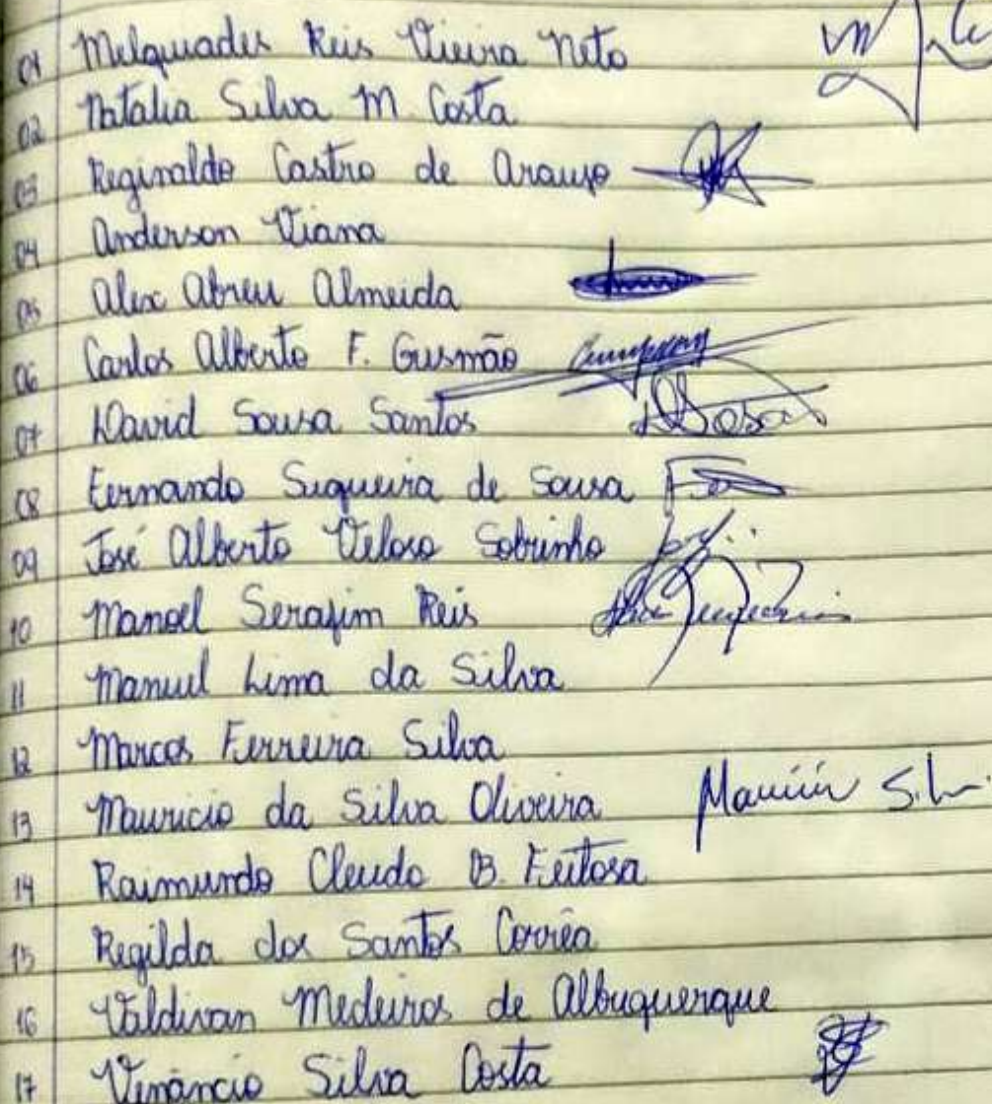 01 Melquiades Reis Vieira Neto
02 Natalia Silva M. Costa
03 Reginaldo Castro de Araujo
04 Anderson Viana
05 Alex Abreu Almeida
06 Carlos Alberto F. Gusmão
07 David Sousa Santos
08 Fernando Siqueira de Sousa
09 José Alberto Veloso Sobrinho
10 Manoel Serafim Reis
11 Manuel Lima da Silva
12 Marcos Ferreira Silva
13 Mauricio da Silva Oliveira
14 Raimundo Cleudo B. Feitosa
15 Regilda dos Santos Corrêa
16 Valdivan Medeiros de Albuquerque
17 Venâncio Silva Costa